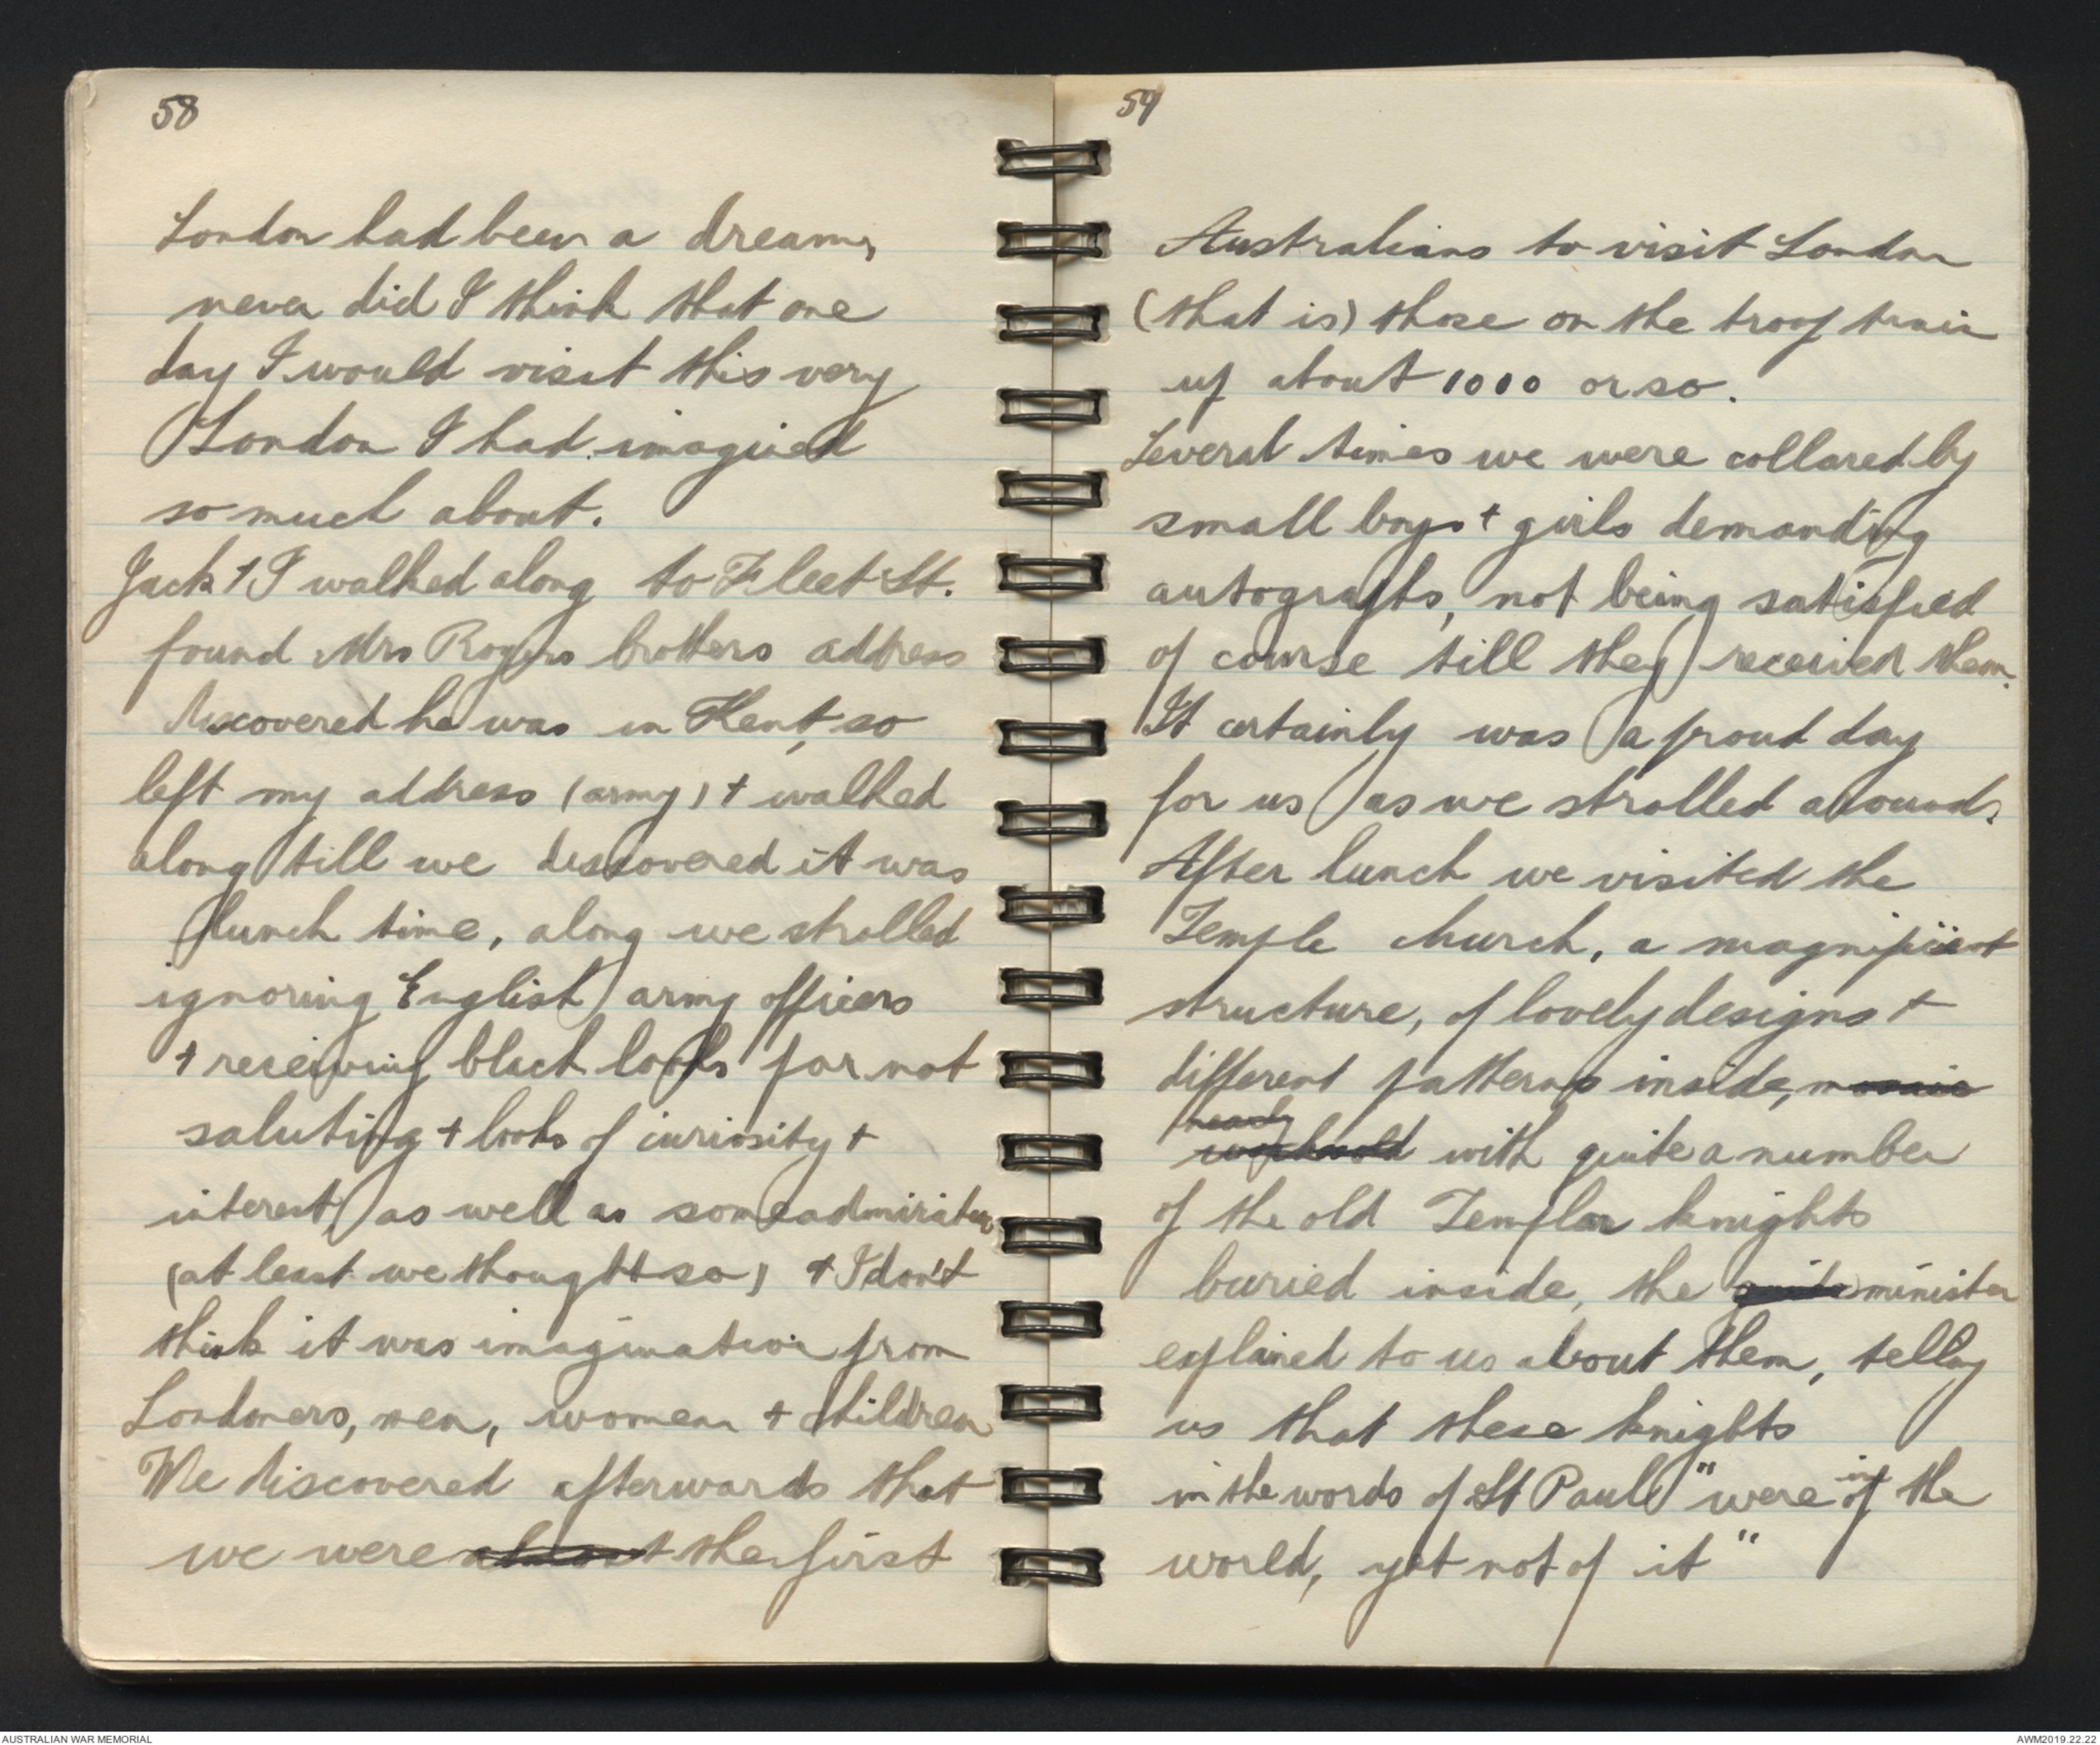 58
London had been a dream,
never did I think that one
day I would visit this very
London I had imagined
so much about.
Jack + I walked along to Fleet St.
found Mrs Rogers brothers address
discovered he was in Kent, so
left my address (army) + walked
along till we discovered it was
lunch time, along we strolled
ignoring English army officers
+ receiving black looks for not
saluting + looks of curiosity +
interest, as well as some admiration
(at least we thought so) + I don't
think it was imagination from
Londoners, men, women + children
We discovered afterwards that
we were almost the first
59
Australians to visit London
(that is) those on the troop train
up about 1000 or so.
Several times we were collared by
small boys + girls demanding
autographs, not being satisfied
of course till they received them.
It certainly was a proud day
for us as we strolled around.
After lunch we visited the
Temple church, a magnificent
structure, of lovely designs +
different patterns inside, mosaic
nearly
with quite a number
of the old Templar knights
buried inside, the quite minister
explained to us about them, telling
us that these knights
in the words of St Paul "were in of the
world, yet not of it"
AUSTRALIAN WAR MEMORIAL
AWM2019.22.22